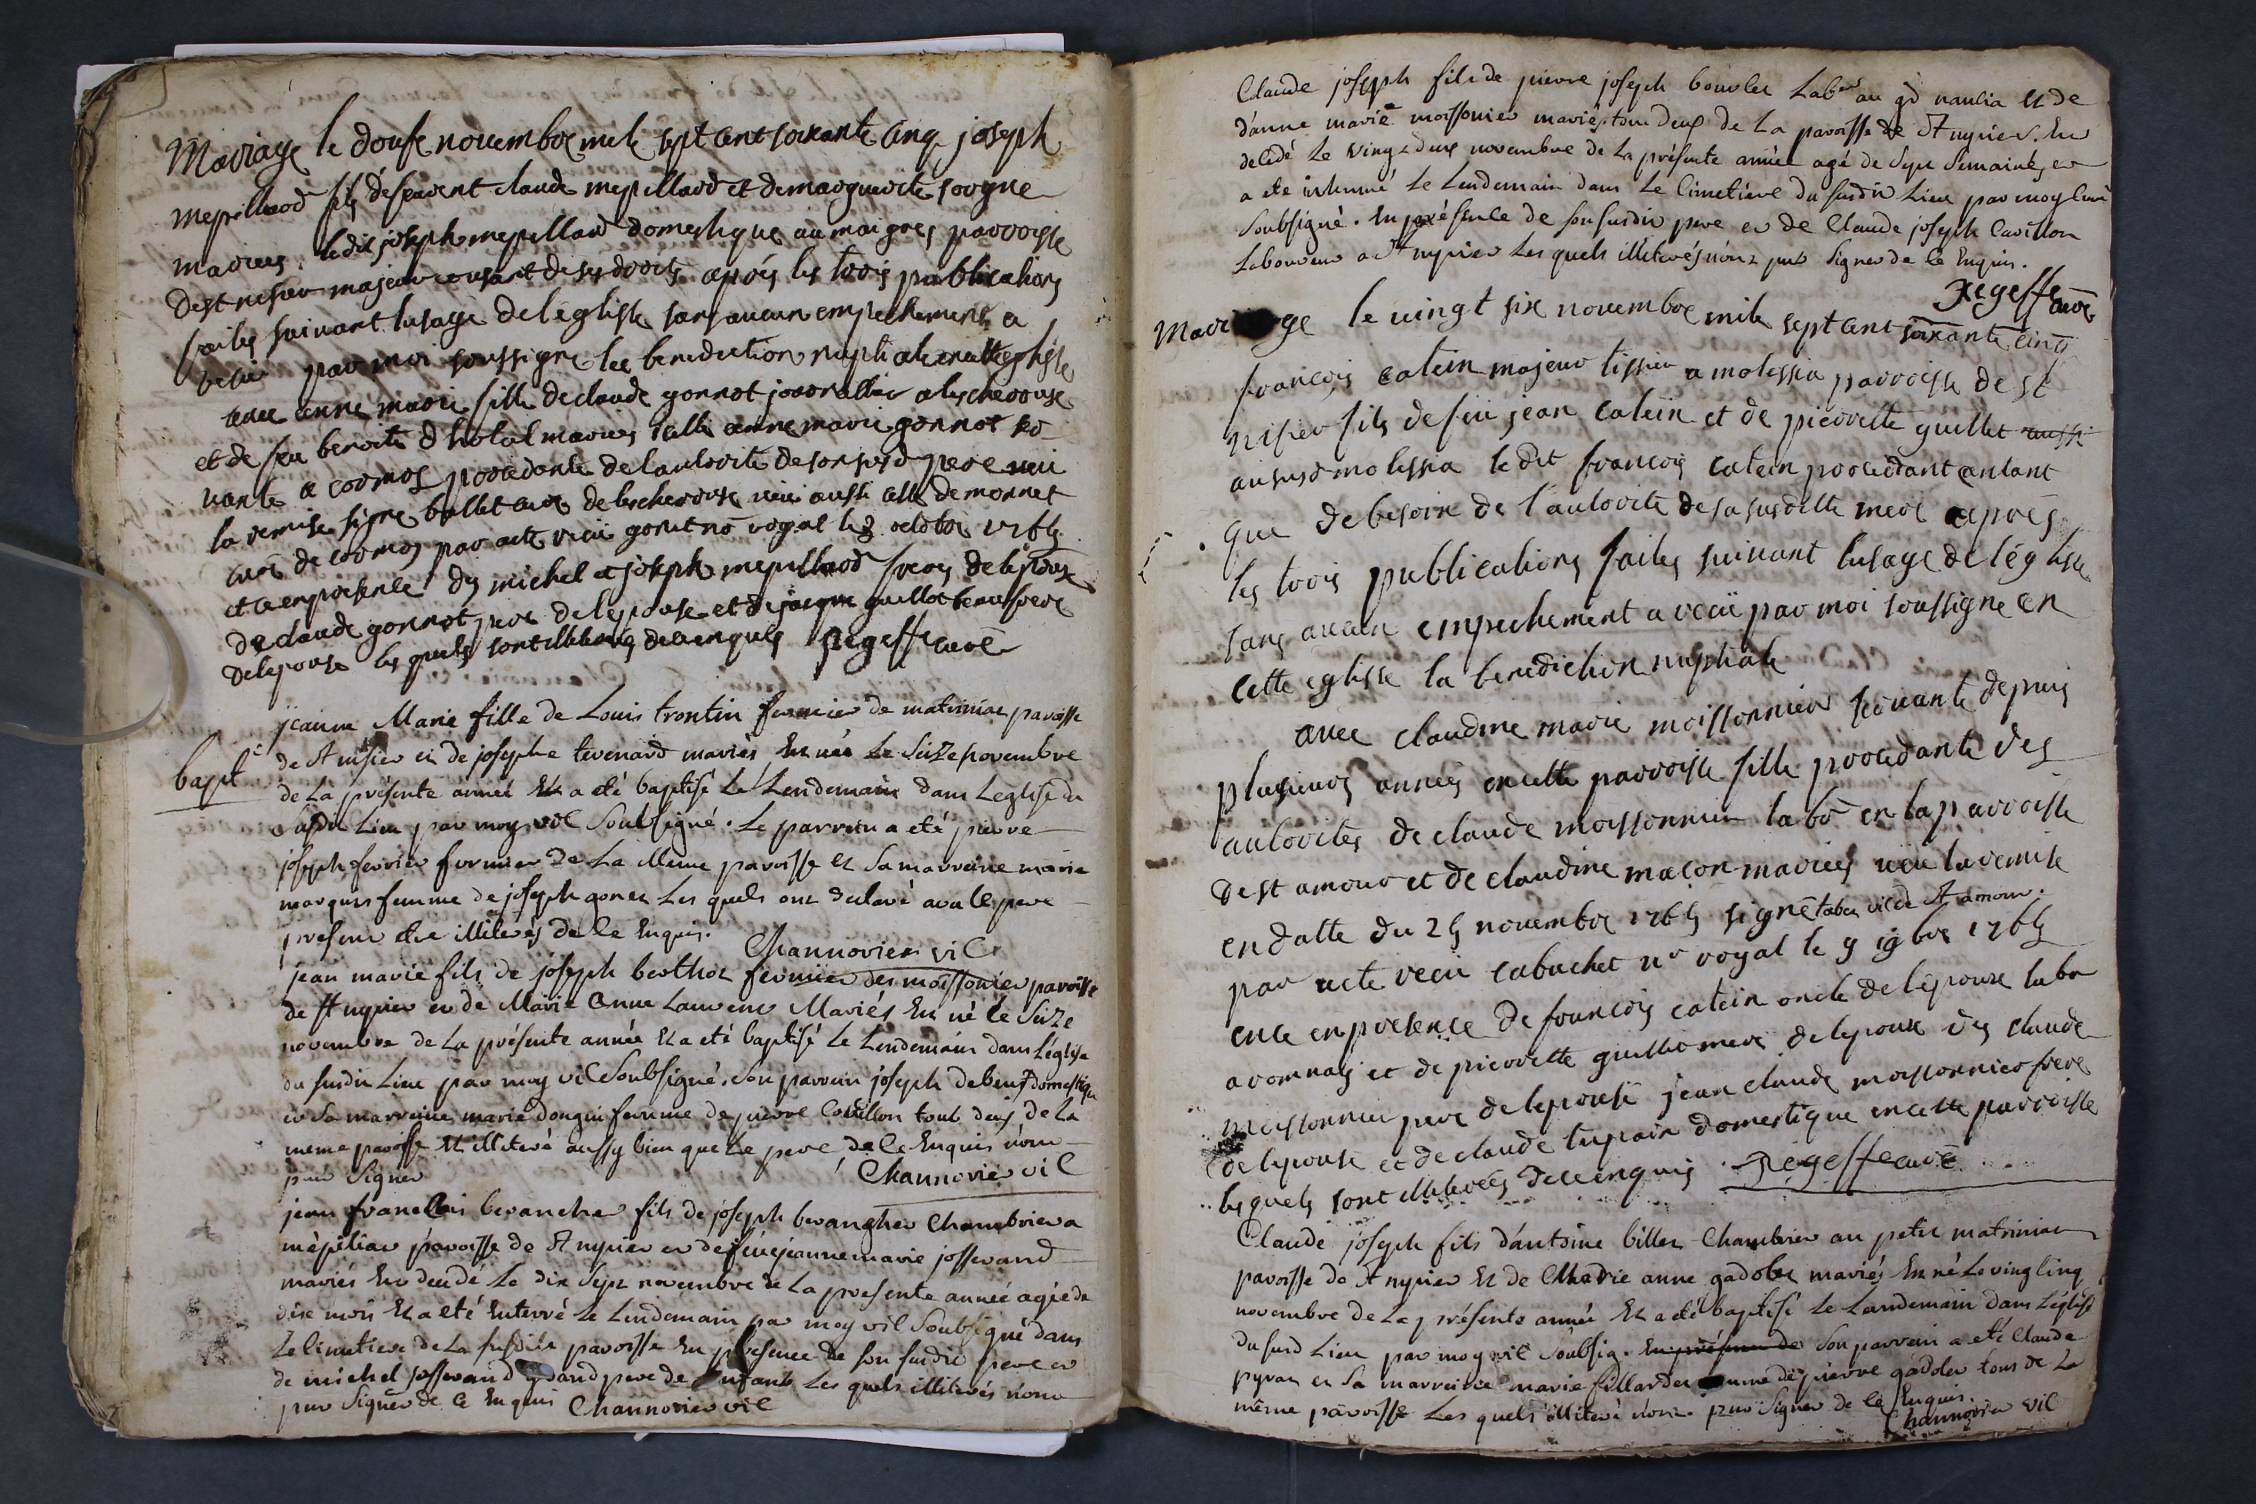 Mariage le douse novembre mile sept cent soixante cinq joseph
mepillard fils de feu vent claude mepillard et de marguerite sorgne
mariés ledit joseph mepillard domestique au maigres parroisse
de st nisier majeur et usant de ses droits après les trois publications
faites suivant lusage de leglise sans aucun empechement a
recue par moi soussigne lee benediction nuptiale en cette eglisse
avec anne marie fille de claude gonnot journallier a lescheroux
et de feu benoite d hotal mariés ladte anne marie gonnot ser
vante a cormos procedante de lautorite de son susd pere veu
la remise signe ballet curé de lescheroux veu aussi celle de monnet
curé de cormos par acte recu gonet no royal le 3 octobre 1765
et ce en presence des michel et joseph mepillard freres de lepoux
de claude gonnot pere de lepouse et de jacque guillot beaufrere
de lepouse les quels sont illiteres de ce enquis regeffe curé
jeanne Marie fille de Louis trontin fermier de matriniat paroisse
bapt.e de st nisier et de josephe tevenard mariés Est née Le Seize novembre
de La présente année Et a eté baptisé Le Lendemain dans Leglise du
susdit Lieu par moy vic Soubsigné. Le parrein a eté pierre
joseph fevrier fermier de La Meme paroisse et Sa marreine marie
marquis femme de joseph gonet Les quels ont declaré avec le pere
present etre illiterés de Ce Enquis.
Channorier vic
jean marie fils de joseph berthot fermier des moissonier paroisse
de st nyzier et de Marie Anne Laurent Mariés Est né le Seize
novembre de La présente année Et a eté baptisé Le Lendemain dans Léglise
du susdit Lieu par moy vic Soubsigné. Son parrein joseph debeuf domestique
et Sa marreine marie donguin femme de pierre Cavillon tout deux de La
meme paroisse Et illiteré aussy bien que Le pere de Ce Enquis n'ont
peu Signer Channorier vic
jean francois beranche fils de joseph berangher Chambrier a
mépiliat paroisse de St nyzier et de feue jeanne marie josserand
mariés Est decedé Le dix Sept novembre de La presente année agée de
dix mois Et a eté Enterré Le Lendemain par moy vic Soubsigné dans
Le Cimetiere de La susdite paroisse En presence de son susdit pere et
de michel josserand grand pere de Enfant Les quels illiterés n'ont
peu Signer de Ce Enquis Channorier vic
Claude joseph fils de pierre joseph bouvler Lab.eur au gd vaulia et de
d'anne marie moissonier mariés tous deux de La paroisse de St nyzier. Est
decedé Le vingt deux novembre de La présente année agé de Sept Semaines et
a ete inhumé Le Lendemain dans Le Cimetiere du susdit Lieu par moy Curé
Soubsigné. En présence de Son susdit pere et de Claude joseph Cavillon
Laboureur a St nyzier Les quels illiterés n'ont peu Signer de Ce Enquis.
Regeffe curé
Mariage le vingt six novembre mile sept cent soixante cinq
francois catein majeur tissier a molissia parroisse de st
nisier fils de feu jean catein et de pierrette guillet aussi
au susd molissia le dit francois catein procedant en tant
que de besoin de l'autorite de sa susditte mere après
les trois publications faites suivant lusage de léglise
sans aucun empechement a recu par moi soussigne en
cette eglisse la benediction nuptiale
avec claudine marie moissonnier servante depuis
plusieurs années en cette parroisse fille procedante des
autorites de claude moissonnier labo en la parroisse
de st amour et de claudine macon mariés veu la remise
en datte du 25 novembre 1765 signe taber vic de St amour.
par acte recu cabuchet nre royal le 9 9bre 1765
en ce en presence de francois catein oncle de lépoux labo
a romnaj et de pierrette guillot mere de lepoux des claude
moissonnier pere de lepouse jean claude moissonnier frere
de lepouse et de claude tupain domestique en cette parroisse
les quels sont illiterés de ce enquis. Regeffe curé
Claude joseph fils d'antoine billet Chambrier au petit matriniat
paroisse de St nyzier Et de Marie anne gadolet mariés Est né Le vingt cinq
novembre de La présente année Et a eté baptisé Le Landemain dans Léglise
du susd Lieu par moy vic Soubsig. En présence de Son parrein a eté Claude
pyrat et Sa marreine marie fillardet femme de pierre gadolet tous de La
même paroisse Les quels illiteré n'ont peu Signer de Ce Enquis.
Channorier vic